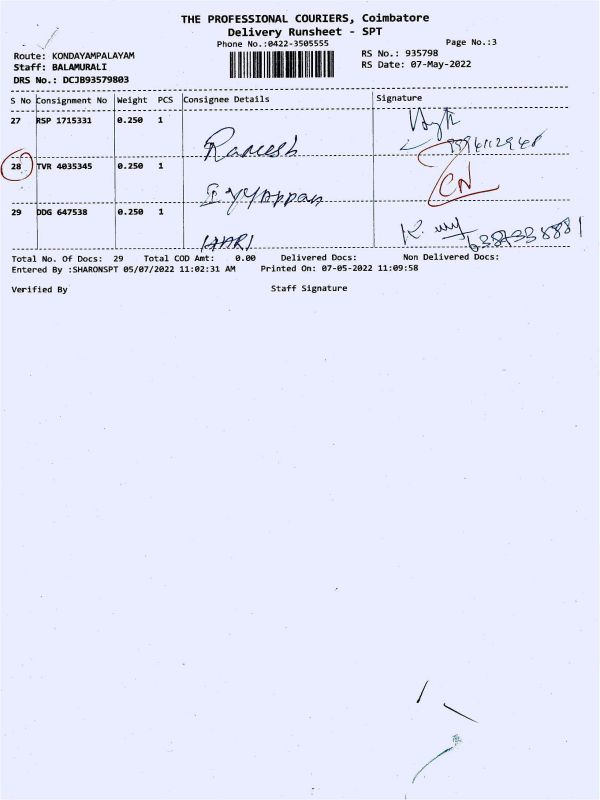 THE PROFESSIONAL COURIERS, Coimbatore
Delivery Runsheet - SPT
Phone No.:0422-3505555
Page No.:3
Route: KONDAYAMPALAYAM
RS No.: 935798
Staff: BALAMURALI
RS Date: 07-May-2022
DRS No.: DCJB93579803
S No Consignment No Weight PCS Consignee Details Signature
27 RSP 1715331 0.250 1
Ramesh
28 TVR 4035345 0.250 1
CN
Iyyappan
29 DDG 647538 0.250 1
HARI
Total No. Of Docs: 29 Total COD Amt: 0.00 Delivered Docs: Non Delivered Docs:
Entered By :SHARONSPT 05/07/2022 11:02:31 AM Printed On: 07-05-2022 11:09:58
Verified By Staff Signature